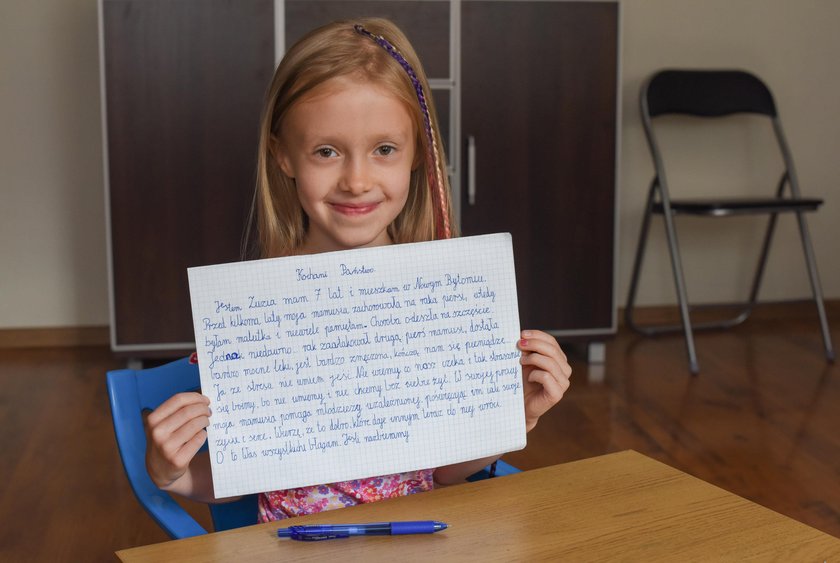 Kochani Państwo
Jestem Zuzia mam 7 lat i mieszkam w Nowym Bytomiu.
Przed kilkoma laty moja mamusia zachorowała na raka piersi, wtedy
byłam malutka i niewiele pamiętam. Choroba odeszła na szczęście.
Jednak niedawno rak zaatakował drugą pierś mamusi, dostała
bardzo mocne leki, jest bardzo zmęczona, kończą nam się pieniądze.
Ja ze stresu nie umiem jeść. Nie wiemy co nas czeka i tak strasznie
się boimy, bo nie umiemy i nie chcemy bez siebie żyć. W swojej pracy
moja mamusia pomaga młodzieży uzależnionej, poświęcając im całe swoje
życie i serce. Wierzę, że to dobro, które daje innym teraz do niej wróci.
O to Was wszystkich błagam. Jeśli nazbieramy